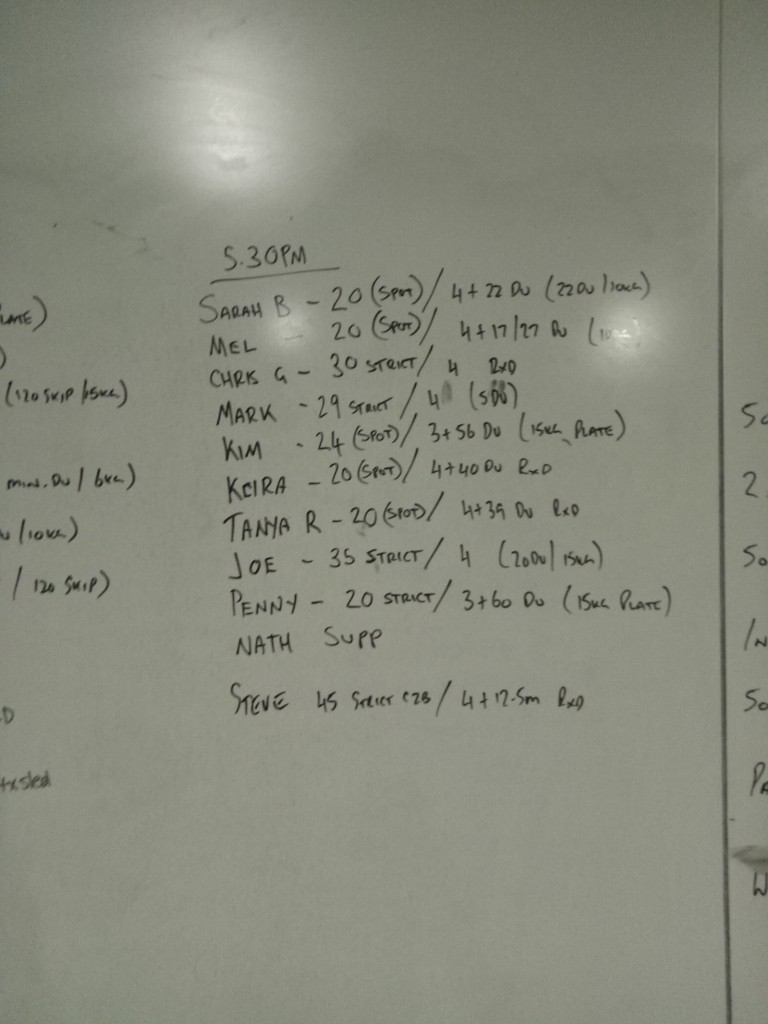 5.30PM
SARAH B - 20 (SPOT) / 4+22 DU (22DU/10KG)
MEL - 20 (SPOT) / 4+17/27 DU
CHRIS G - 30 STRICT / 4 RXD
MARK - 29 STRICT / 4
KIM - 24 (SPOT) / 3+56 DU (15KG PLATE)
KEIRA - 20 (SPOT) / 4+40 DU RXD
TANYA R - 20 (SPOT) / 4+39 DU RXD
JOE - 35 STRICT / 4 (20DU/15KG)
PENNY - 20 STRICT / 3+60 DU (15KG PLATE)
NATH SUPP
STEVE 45 STRICT C2B / 4+12.5m RXD
(120 SKIP/15KG)
MIN. DU / 6KG)
/10KG)
/ 120 SKIP)
sled
2.